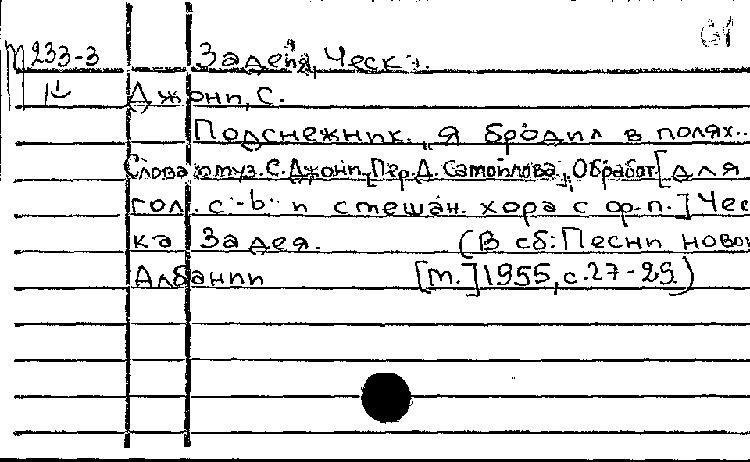 233-3 Задея, Ческа.
Джони, С.
Подснежник. „Я бродил в полях..
Слова и муз. С. Джони, [Пер. Д. Самойлова, Обработ [для
гол. с-b. и смешан. хора с ф-п.] Чес
ка Задея. (В сб: Песни новой
Албании [М.] 1955, с. 27-29)